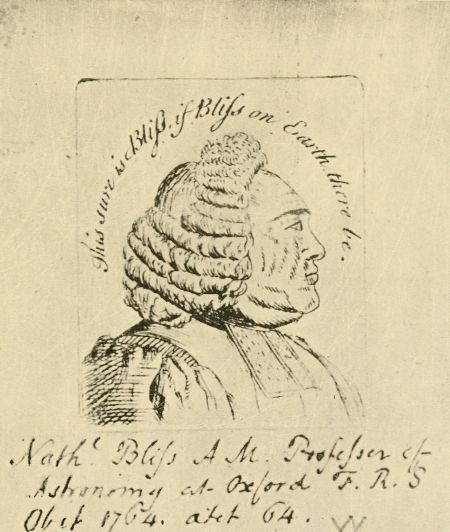 This sure is Bliſs, if Bliſs on Earth there be.
Nath.ˡ Bliſs A M. Profeſser of
Astronomy at Oxford F. R. S
Obit 1764. atet 64.